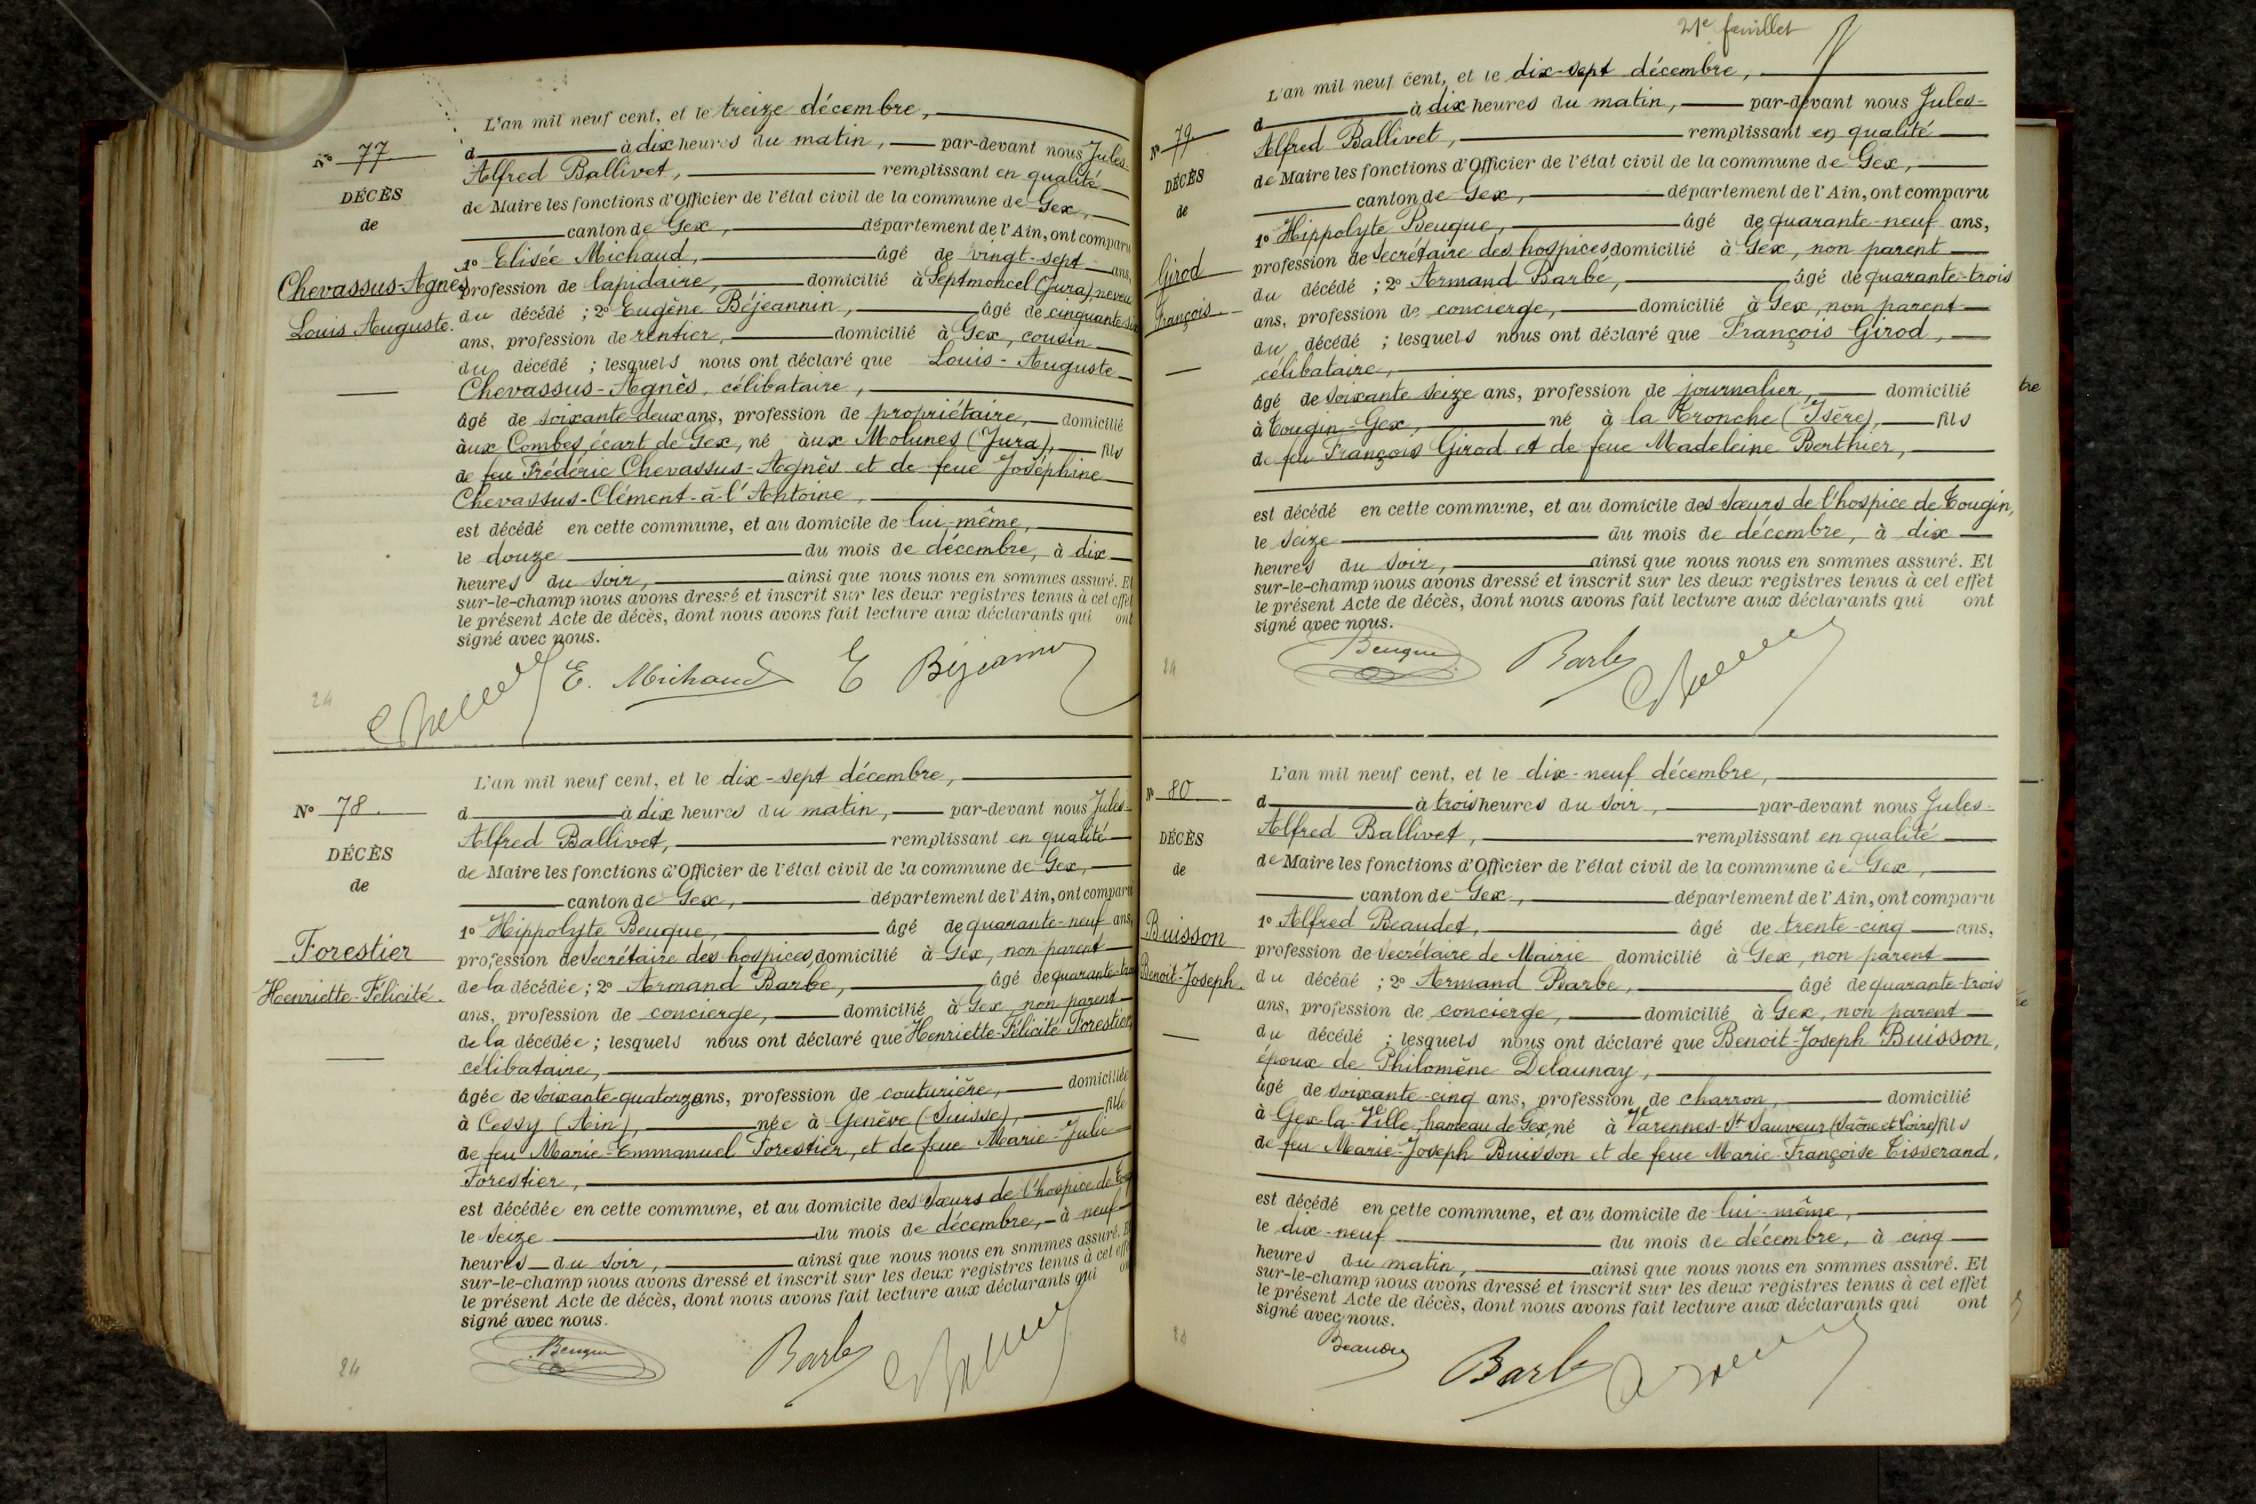 L'an mil neuf cent, et le treize décembre,
N° 77
d à dix heures du matin, par-devant nous Jules-
Alfred Ballivet, remplissant en qualité
DÉCÈS
de Maire les fonctions d'Officier de l'état civil de la commune de Gex,
de
canton de Gex, département de l'Ain, ont comparu
1° Elisée Michaud, âgé de vingt-sept ans,
Chevassus-Agnès
profession de lapidaire, domicilié à Septmoncel (Jura), neveu
Louis Auguste.
du décédé ; 2° Eugène Béjeannin, âgé de cinquante-six
ans, profession de rentier, domicilié à Gex, cousin
du décédé ; lesquels nous ont déclaré que Louis-Auguste
Chevassus-Agnès, célibataire,
âgé de soixante-deux ans, profession de propriétaire, domicilié
aux Combes, écart de Gex, né aux Molunes (Jura), fils
de feu Frédéric Chevassus-Agnès et de feue Joséphine
Chevassus-Clément-à-l'Antoine,
est décédé en cette commune, et au domicile de lui-même,
le douze du mois de décembre, à dix
heures du soir, ainsi que nous nous en sommes assuré. Et
sur-le-champ nous avons dressé et inscrit sur les deux registres tenus à cet effet
le présent Acte de décès, dont nous avons fait lecture aux déclarants qui ont
signé avec nous.
E. Michaud E Béjeannin
24
L'an mil neuf cent, et le dix-sept décembre,
N° 78.
d à dix heures du matin, par-devant nous Jules-
Alfred Ballivet, remplissant en qualité
DÉCÈS
de Maire les fonctions d'Officier de l'état civil de la commune de Gex,
de
canton de Gex, département de l'Ain, ont comparu
1° Hippolyte Beuque, âgé de quarante-neuf ans,
Forestier
profession de secrétaire des hospices, domicilié à Gex, non parent
Henriette-Félicité.
de la décédée ; 2° Armand Barbe, âgé de quarante-trois
ans, profession de concierge, domicilié à Gex, non parent
de la décédée ; lesquels nous ont déclaré que Henriette-Félicité Forestier,
célibataire,
âgée de soixante-quatorze ans, profession de couturière, domiciliée
à Cessy (Ain), née à Genève (Suisse), fille
de feu Marie-Emmanuel Forestier, et de feue Marie-Julie
Forestier,
est décédée en cette commune, et au domicile des sœurs de l'hospice de Toug
le seize du mois de décembre, à neuf
heures du soir, ainsi que nous nous en sommes assuré. Et
sur-le-champ nous avons dressé et inscrit sur les deux registres tenus à cet effet
le présent Acte de décès, dont nous avons fait lecture aux déclarants qui ont
signé avec nous.
Beuque Barbe
24
21e feuillet
L'an mil neuf cent, et le dix-sept décembre,
N° 79
d à dix heures du matin, par-devant nous Jules-
Alfred Ballivet, remplissant en qualité
DÉCÈS
de Maire les fonctions d'Officier de l'état civil de la commune de Gex,
de
canton de Gex, département de l'Ain, ont comparu
1° Hippolyte Beuque, âgé de quarante-neuf ans,
Girod
profession de secrétaire des hospices, domicilié à Gex, non parent
François
du décédé ; 2° Armand Barbe, âgé de quarante-trois
ans, profession de concierge, domicilié à Gex, non parent
du décédé ; lesquels nous ont déclaré que François Girod,
célibataire,
âgé de soixante seize ans, profession de journalier, domicilié
à Tougin-Gex, né à la Tronche (Isère), fils
de feu François Girod et de feue Madeleine Berthier,
est décédé en cette commune, et au domicile des sœurs de l'hospice de Tougin,
le seize du mois de décembre, à dix
heures du soir, ainsi que nous nous en sommes assuré. Et
sur-le-champ nous avons dressé et inscrit sur les deux registres tenus à cet effet
le présent Acte de décès, dont nous avons fait lecture aux déclarants qui ont
signé avec nous.
Beuque Barbe
24
L'an mil neuf cent, et le dix-neuf décembre,
N° 80
d à trois heures du soir, par-devant nous Jules-
Alfred Ballivet, remplissant en qualité
DÉCÈS
de Maire les fonctions d'Officier de l'état civil de la commune de Gex,
de
canton de Gex, département de l'Ain, ont comparu
1° Alfred Beaudet, âgé de trente-cinq ans,
Buisson
profession de secrétaire de Mairie domicilié à Gex, non parent
Benoit-Joseph.
du décédé ; 2° Armand Barbe, âgé de quarante-trois
ans, profession de concierge, domicilié à Gex, non parent
du décédé ; lesquels nous ont déclaré que Benoit-Joseph Buisson,
époux de Philomène Delaunay,
âgé de soixante-cinq ans, profession de charron, domicilié
à Gex-la-Ville, hameau de Gex, né à Varennes-St Sauveur (Saône et Loire) fils
de feu Marie-Joseph Buisson et de feue Marie-Françoise Tisserand,
est décédé en cette commune, et au domicile de lui-même,
le dix-neuf du mois de décembre, à cinq
heures du matin, ainsi que nous nous en sommes assuré. Et
sur-le-champ nous avons dressé et inscrit sur les deux registres tenus à cet effet
le présent Acte de décès, dont nous avons fait lecture aux déclarants qui ont
signé avec nous.
Beaudet Barbe